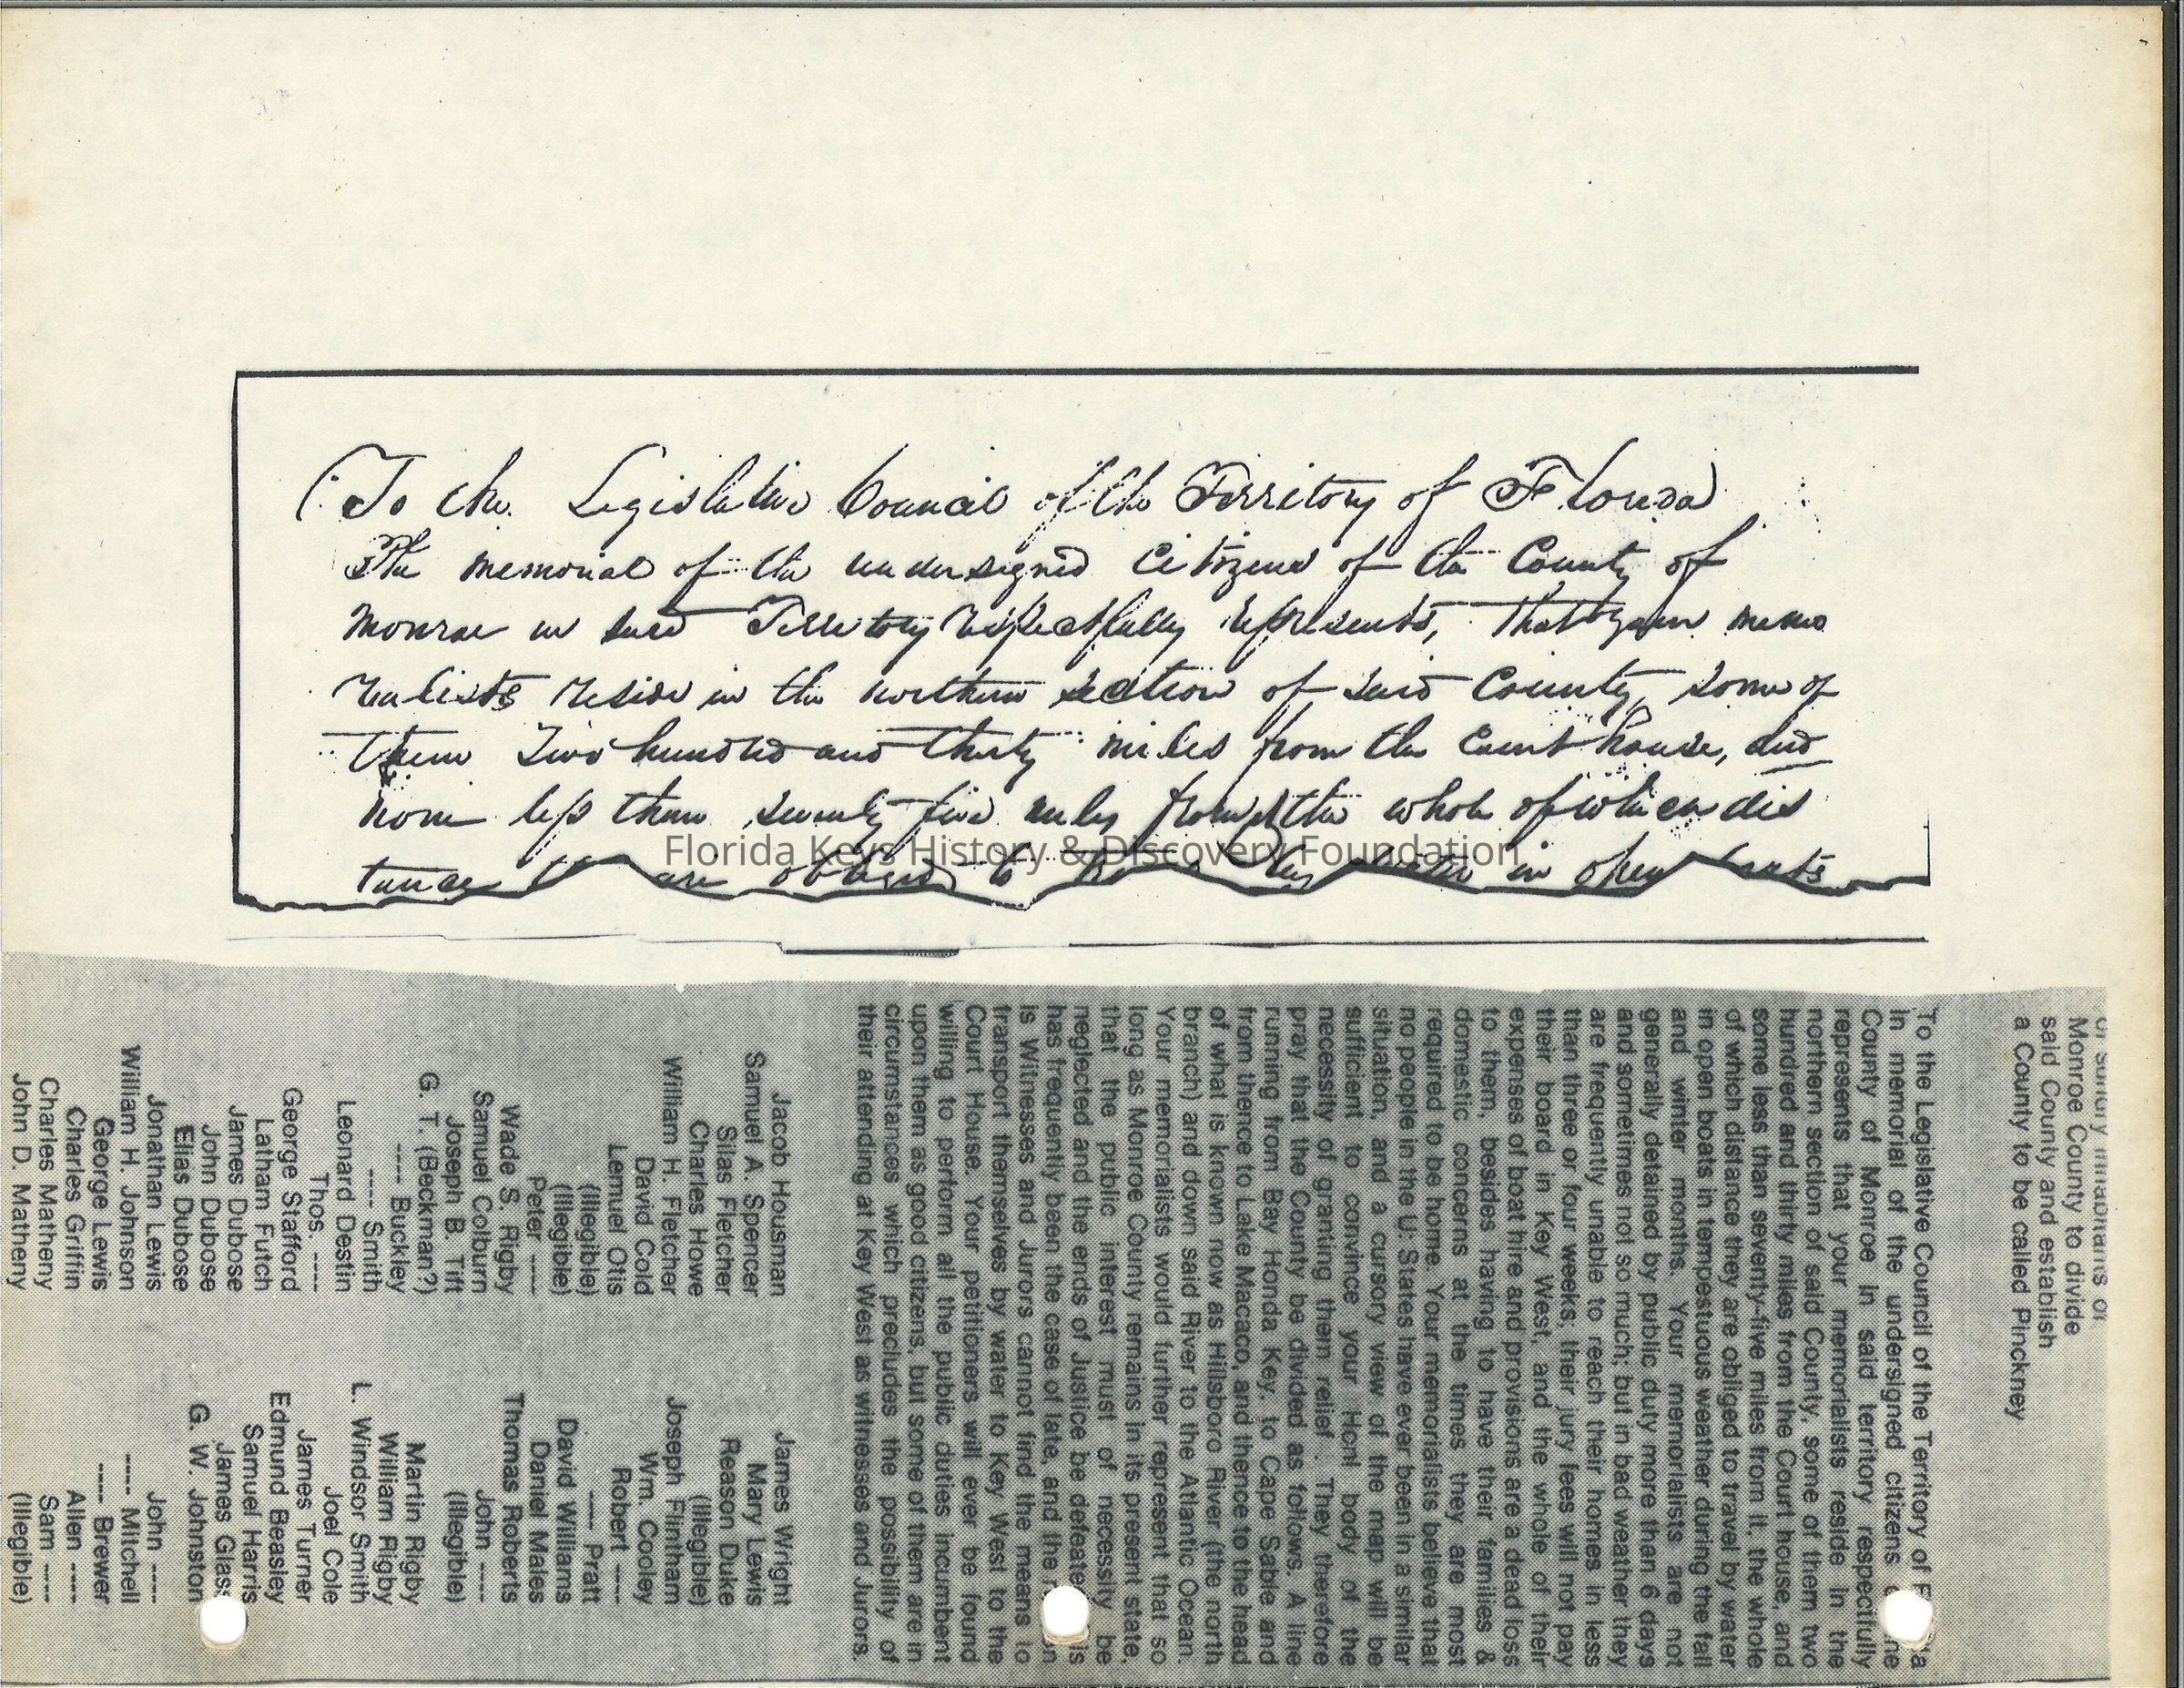 To the Legislative Council of the Territory of Florida
The memorial of the undersigned Citizens of the County of
Monroe in said Territory respectfully represents, that your memo
rialists reside in the northern section of said County, some of
them Two hundred and thirty miles from the Court house, and
none less than seventy five miles from it the whole of which dis
tance are obliged to by water in open boats
Florida Keys History & Discovery Foundation
of sundry inhabitants of
Monroe County to divide
said County and establish
a County to be called Pinckney
To the Legislative Council of the Territory of
In memorial of the undersigned citizens
County of Monroe in said territory respectfully
represents that your memorialists reside in the
northern section of said County, some of them two
hundred and thirty miles from the Court house, and
some less than seventy-five miles from it, the whole
of which distance they are obliged to travel by water
in open boats in tempestuous weather during the fall
and winter months. Your memorialists are not
generally detained by public duty more than 6 days
and sometimes not so much; but in bad weather they
are frequently unable to reach their homes in less
than three or four weeks; their jury fees will not pay
their board in Key West, and the whole of their
expenses of boat hire and provisions are a dead loss
to them, besides having to have their families &
domestic concerns at the times they are most
required to be home. Your memorialists believe that
no people in the U: States have ever been in a similar
situation, and a cursory view of the map will be
sufficient to convince your Honl body of the
necessity of granting them relief. They therefore
pray that the County be divided as follows. A line
running from Bay Honda Key, to Cape Sable and
from thence to Lake Macaco, and thence to the head
of what is known now as Hillsboro River (the north
branch) and down said River to the Atlantic Ocean.
Your memorialists would further represent that so
long as Monroe County remains in its present state,
that the public interest must of necessity be
neglected and the ends of Justice be defeated
has frequently been the case of late, and the
is Witnesses and Jurors cannot find the means to
transport themselves by water to Key West to the
Court House. Your petitioners will ever be found
willing to perform all the public duties incumbent
upon them as good citizens, but some of them are in
circumstances which precludes the possibility of
their attending at Key West as witnesses and Jurors.
Jacob Housman
Samuel A. Spencer
Silas Fletcher
Charles Howe
William H. Fletcher
David Cold
Lemuel Otis
(Illegible)
(Illegible)
Peter ----
Wade S. Rigby
Samuel Colburn
Joseph B. Tift
G. T. (Beckman?)
---- Buckley
---- Smith
Leonard Destin
Thos. ----
George Stafford
Latham Futch
James Dubose
John Dubose
Elias Dubose
Jonathan Lewis
William H. Johnson
George Lewis
Charles Griffin
Charles Matheny
John D. Matheny
James Wright
Mary Lewis
Reason Duke
(Illegible)
Joseph Flintham
Wm. Cooley
Robert ----
---- Pratt
David Williams
Daniel Males
Thomas Roberts
John ----
(Illegible)
Martin Rigby
William Rigby
L. Windsor Smith
Joel Cole
James Turner
Edmund Beasley
Samuel Harris
James Glass
G. W. Johnston
John ----
---- Mitchell
---- Brewer
Allen ----
Sam ----
(Illegible)